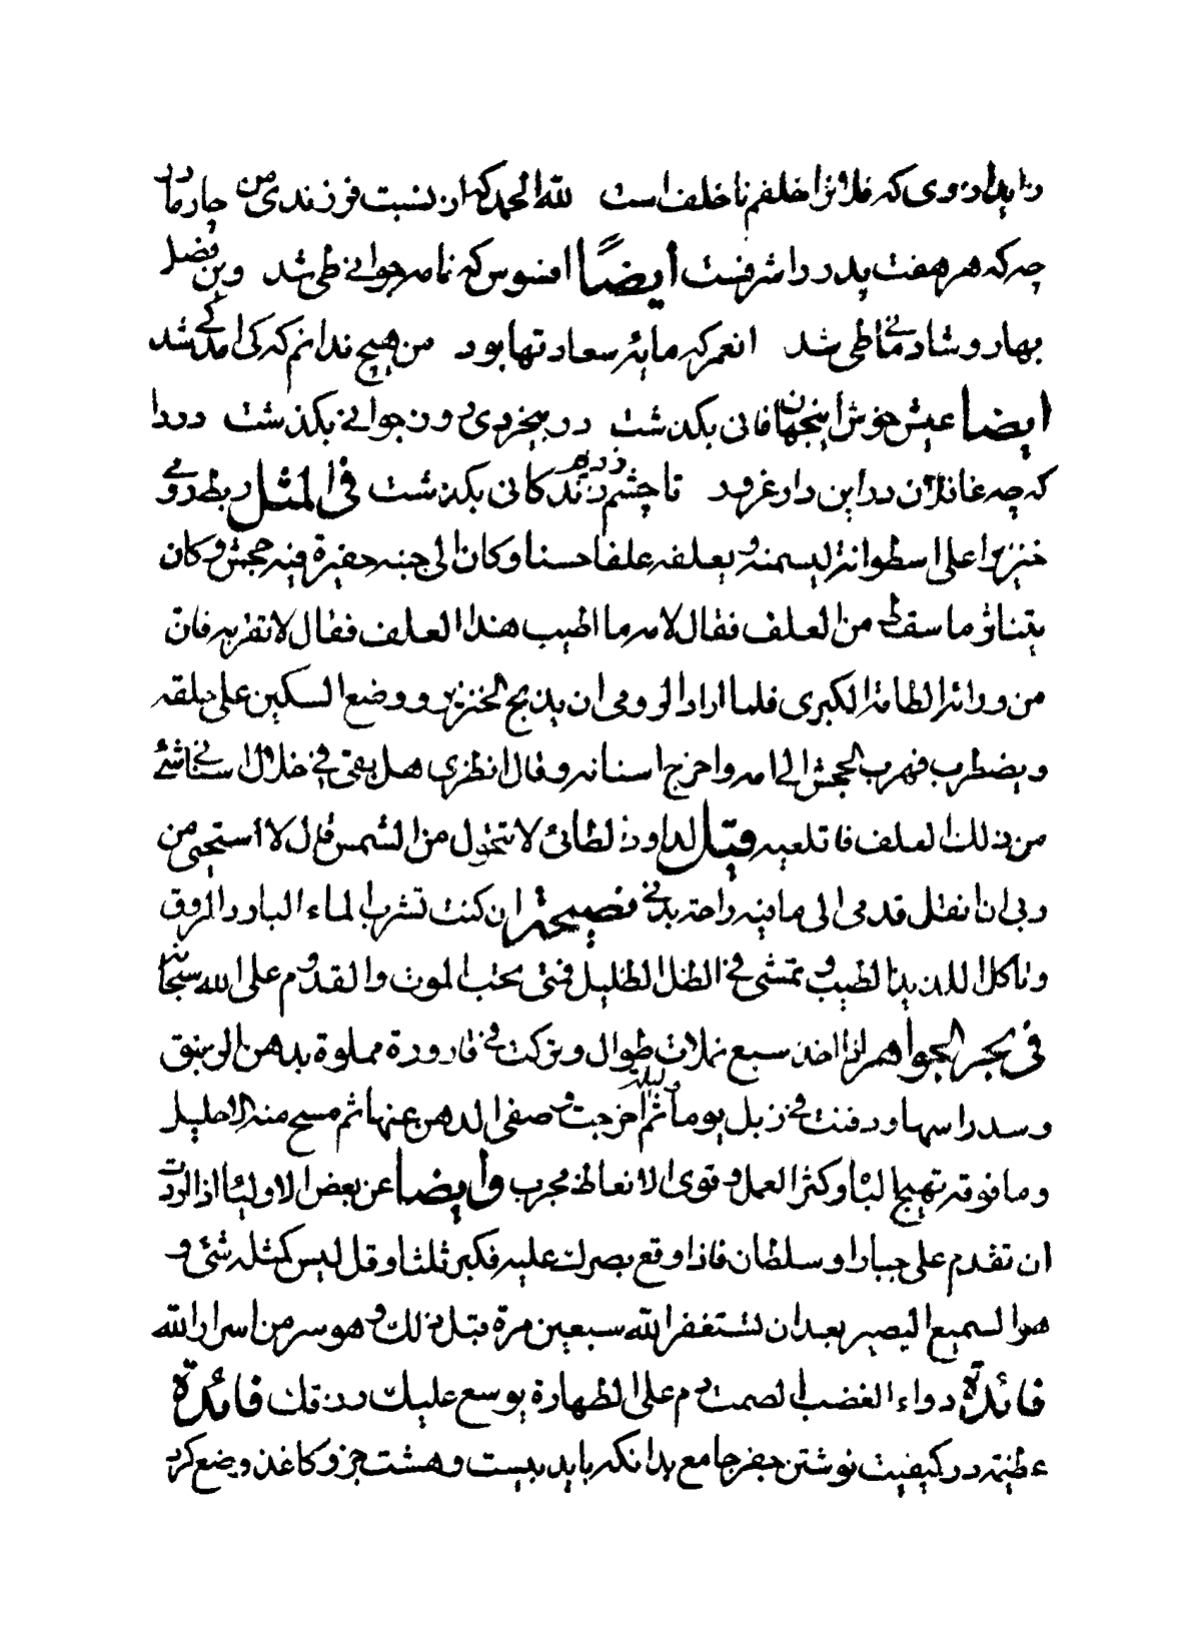 که فلانرا خلفم ناخلف است لله الحمد که از نسبت فرزندی من چار مادر
چه که هر هفت پدر را شرفست ایضًا افسوس که نامه جوانی طی شد وین فصل
بهار و شادمانی طی شد انعمر که مایه سعادتها بود من هیچ ندانم که کی امد کی شد
ایضا عیش خوش اینجهان فانی بکذشت در بیخردی و ز جوانی بکذشت دردا
که چه غافلان درین دار غرور تا چشم زدیم زندکانی بکذشت فی المثل ربط رومی
خنزیرا علی اسطوانة لیسمنه و یعلفه علفا حسنا و کان الی جنبه حفیرة فیه جحش و کان
یتناول ما سقط من العلف فقال لامه ما اطیب هذا العلف فقال لا تقربه فان
من ورائه الطامة الکبری فلما اراد الرومی ان یذبح الخنزیر و وضع السکین علی حلقه
و یضطرب فهرب الجحش الی امه و اخرج اسنانه و قال انظری هل بقی فی خلال اسنانی شئ
من ذلک العلف فاقلعیه قیل لداود الطائی لا تتحول من الشمس قال لا استحیی من
ربی ان انقل قدمی الی ما فیه راحة بدنی نصیحة ان کنت تشرب الماء البارد المروق
و تاکل اللذیذ الطیب و تمشی فی الظل الظلیل فمتی تحب الموت و القدوم علی الله سبحانه
فی بحر الجواهر اذا اخذ سبع نملات طوال و ترکت فی قارورة مملوة بدهن الزنبق
و سد راسها و دفنت فی زبل یوما و لیلة ثم اخرجت و صفی الدهن عنها ثم مسح منه الاحلیل
و ما فوقه تهیج الباه و کثر العمل و قوی الانعاظ مجرب و ایضا عن بعض الاولیاء اذا اردت
ان تقدم علی جبار او سلطان فاذا وقع بصرک علیه فکبر ثلثا و قل لیس کمثله شئ و
هو السمیع البصیر بعد ان تستغفر الله سبعین مرة قبل ذلک و هو سر من اسرار الله
فائدة دواء الغضب الصمت دم علی الطهارة یوسع علیک رزقک فائدة
عظیمة در کیفیت نوشتن جفر جامع بدانکه باید بیست و هشت جزو کاغذ وضع کرد